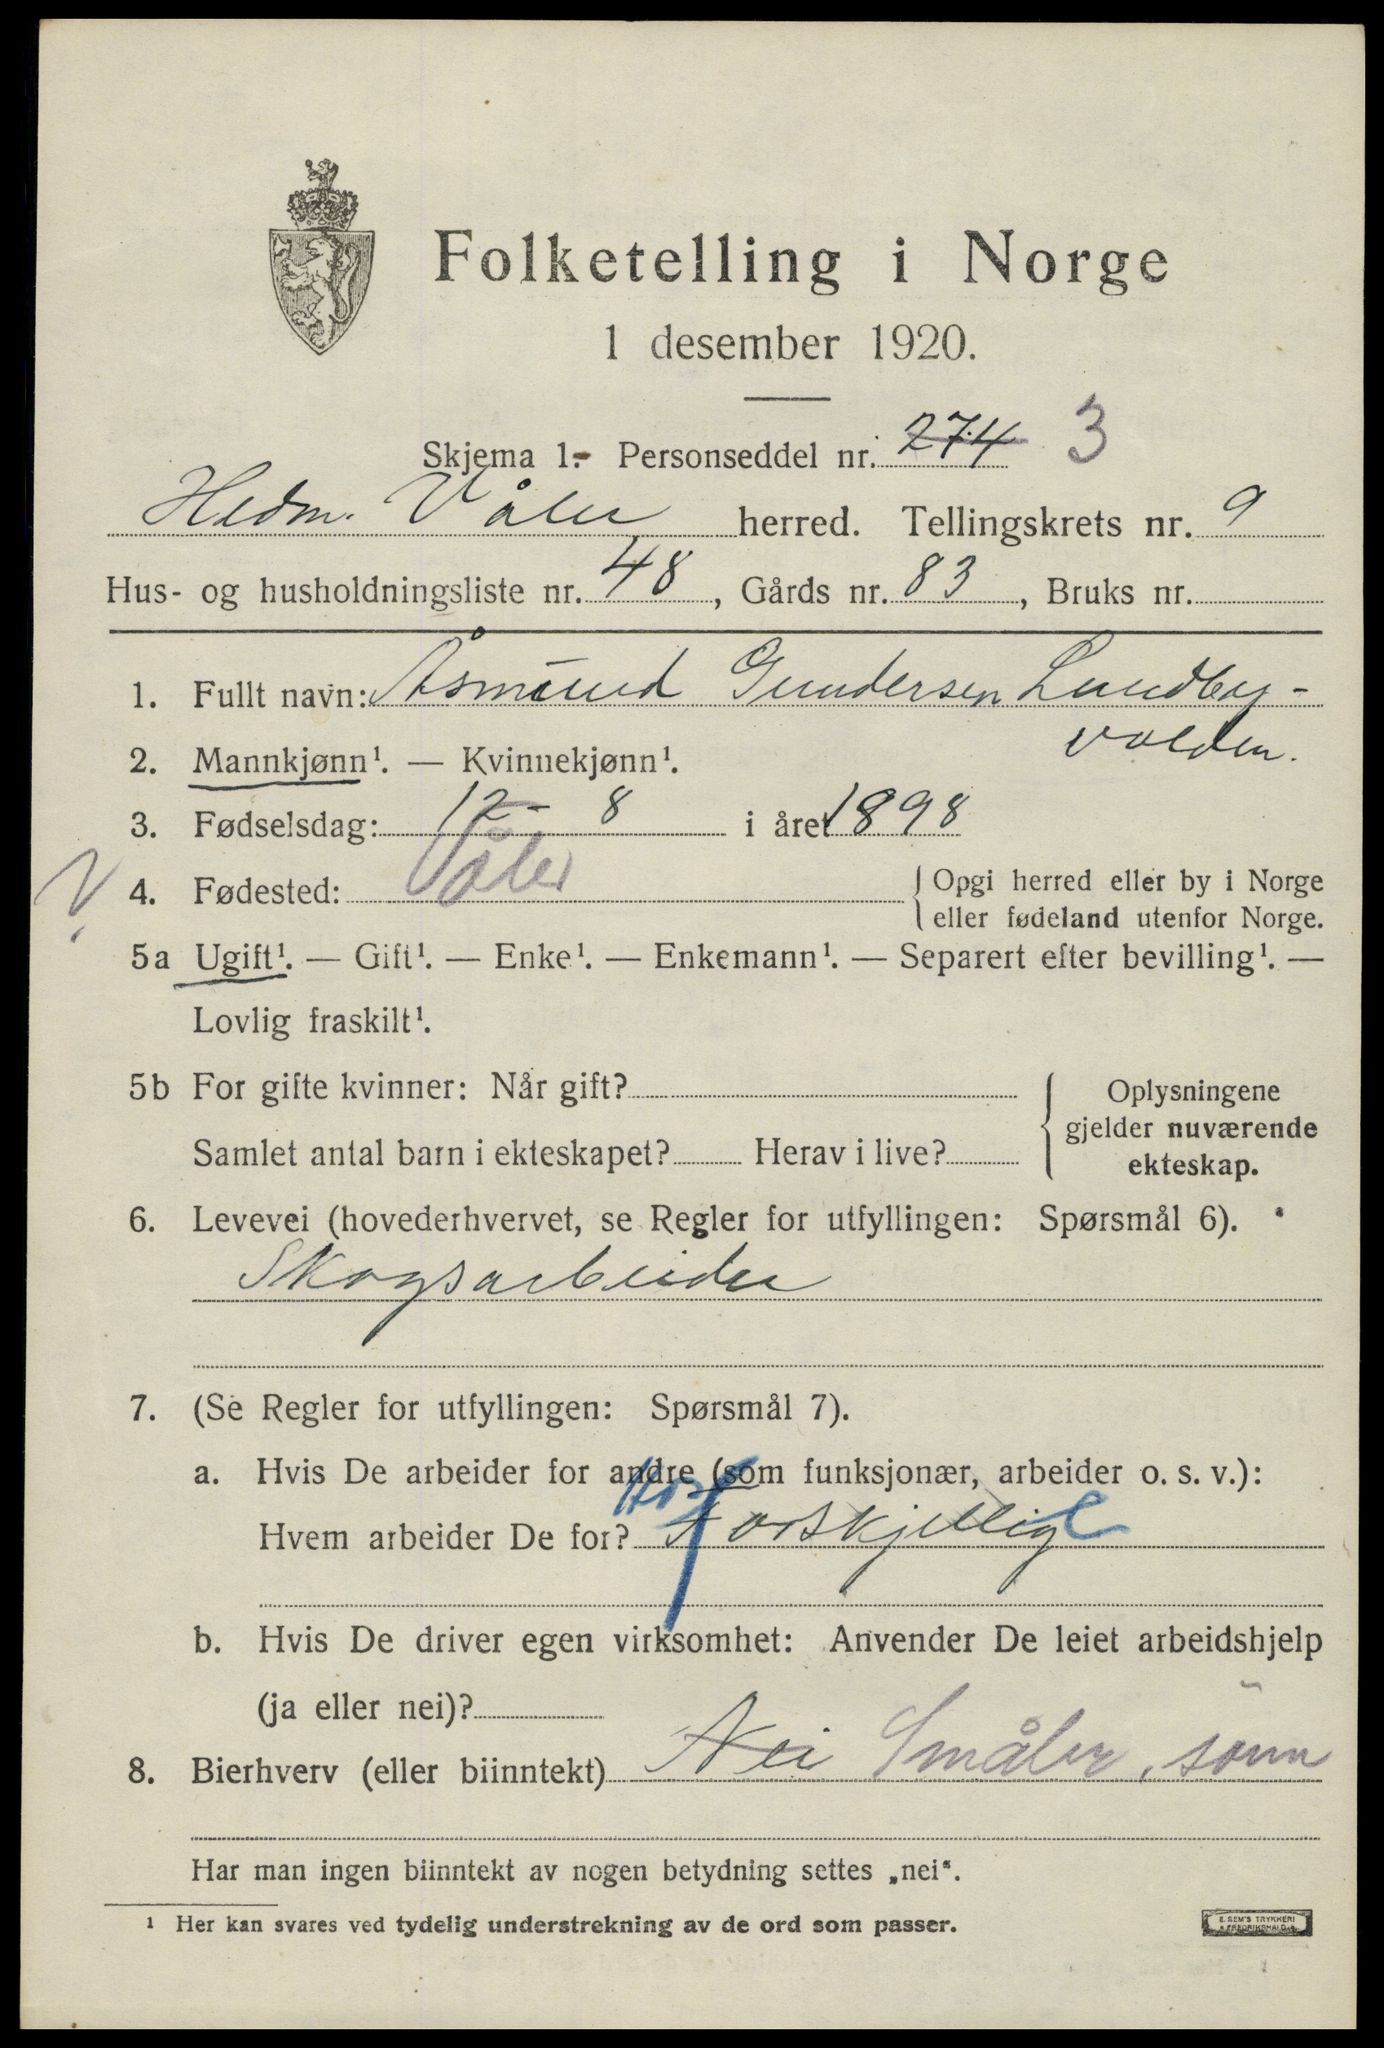 Folketelling i Norge
1 desember 1920.
Skjema 1.- Personseddel nr. 274 3
Hedm. Våler herred. Tellingskrets nr. 9
Hus- og husholdningsliste nr. 48, Gårds nr. 83, Bruks nr.
1. Fullt navn: Åsmund Gundersen Lundby-
volden.
2. Mannkjønn¹. — Kvinnekjønn¹.
3. Fødselsdag: 12 - 8 i året 1898
V. 4. Fødested: Våler { Opgi herred eller by i Norge
eller fødeland utenfor Norge.
5a Ugift¹. — Gift¹. — Enke¹. — Enkemann¹. — Separert efter bevilling¹. —
Lovlig fraskilt¹.
5b For gifte kvinner: Når gift? { Oplysningene
gjelder nuværende
Samlet antal barn i ekteskapet? Herav i live? ekteskap.
6. Levevei (hovederhvervet, se Regler for utfyllingen: Spørsmål 6).
Skogsarbeider
7. (Se Regler for utfyllingen: Spørsmål 7).
a. Hvis De arbeider for andre (som funksjonær, arbeider o. s. v.):
Hvem arbeider De for? Forskjellige
b. Hvis De driver egen virksomhet: Anvender De leiet arbeidshjelp
(ja eller nei)?
8. Bierhverv (eller biinntekt) Nei Småbr. sönn
Har man ingen biinntekt av nogen betydning settes „nei“.
¹ Her kan svares ved tydelig understrekning av de ord som passer.
E. SEM'S TRYKKERI
FREDRIKSHALD